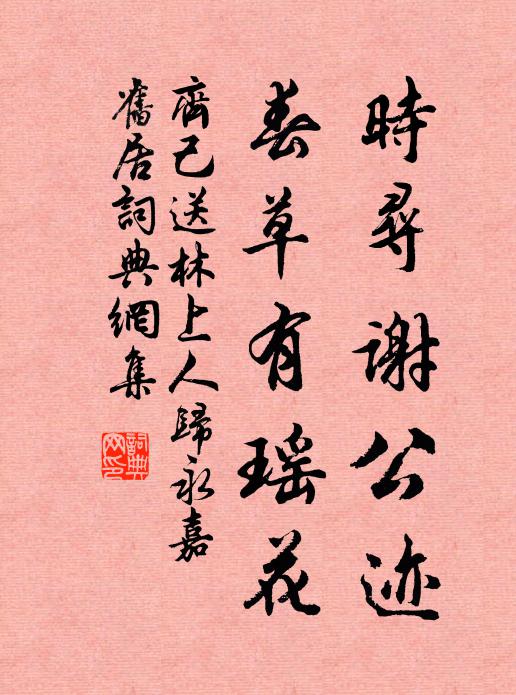 時尋謝公迹
春草有瑶花
齊己送林上人歸永嘉
舊居詞典網集
詞典
网印